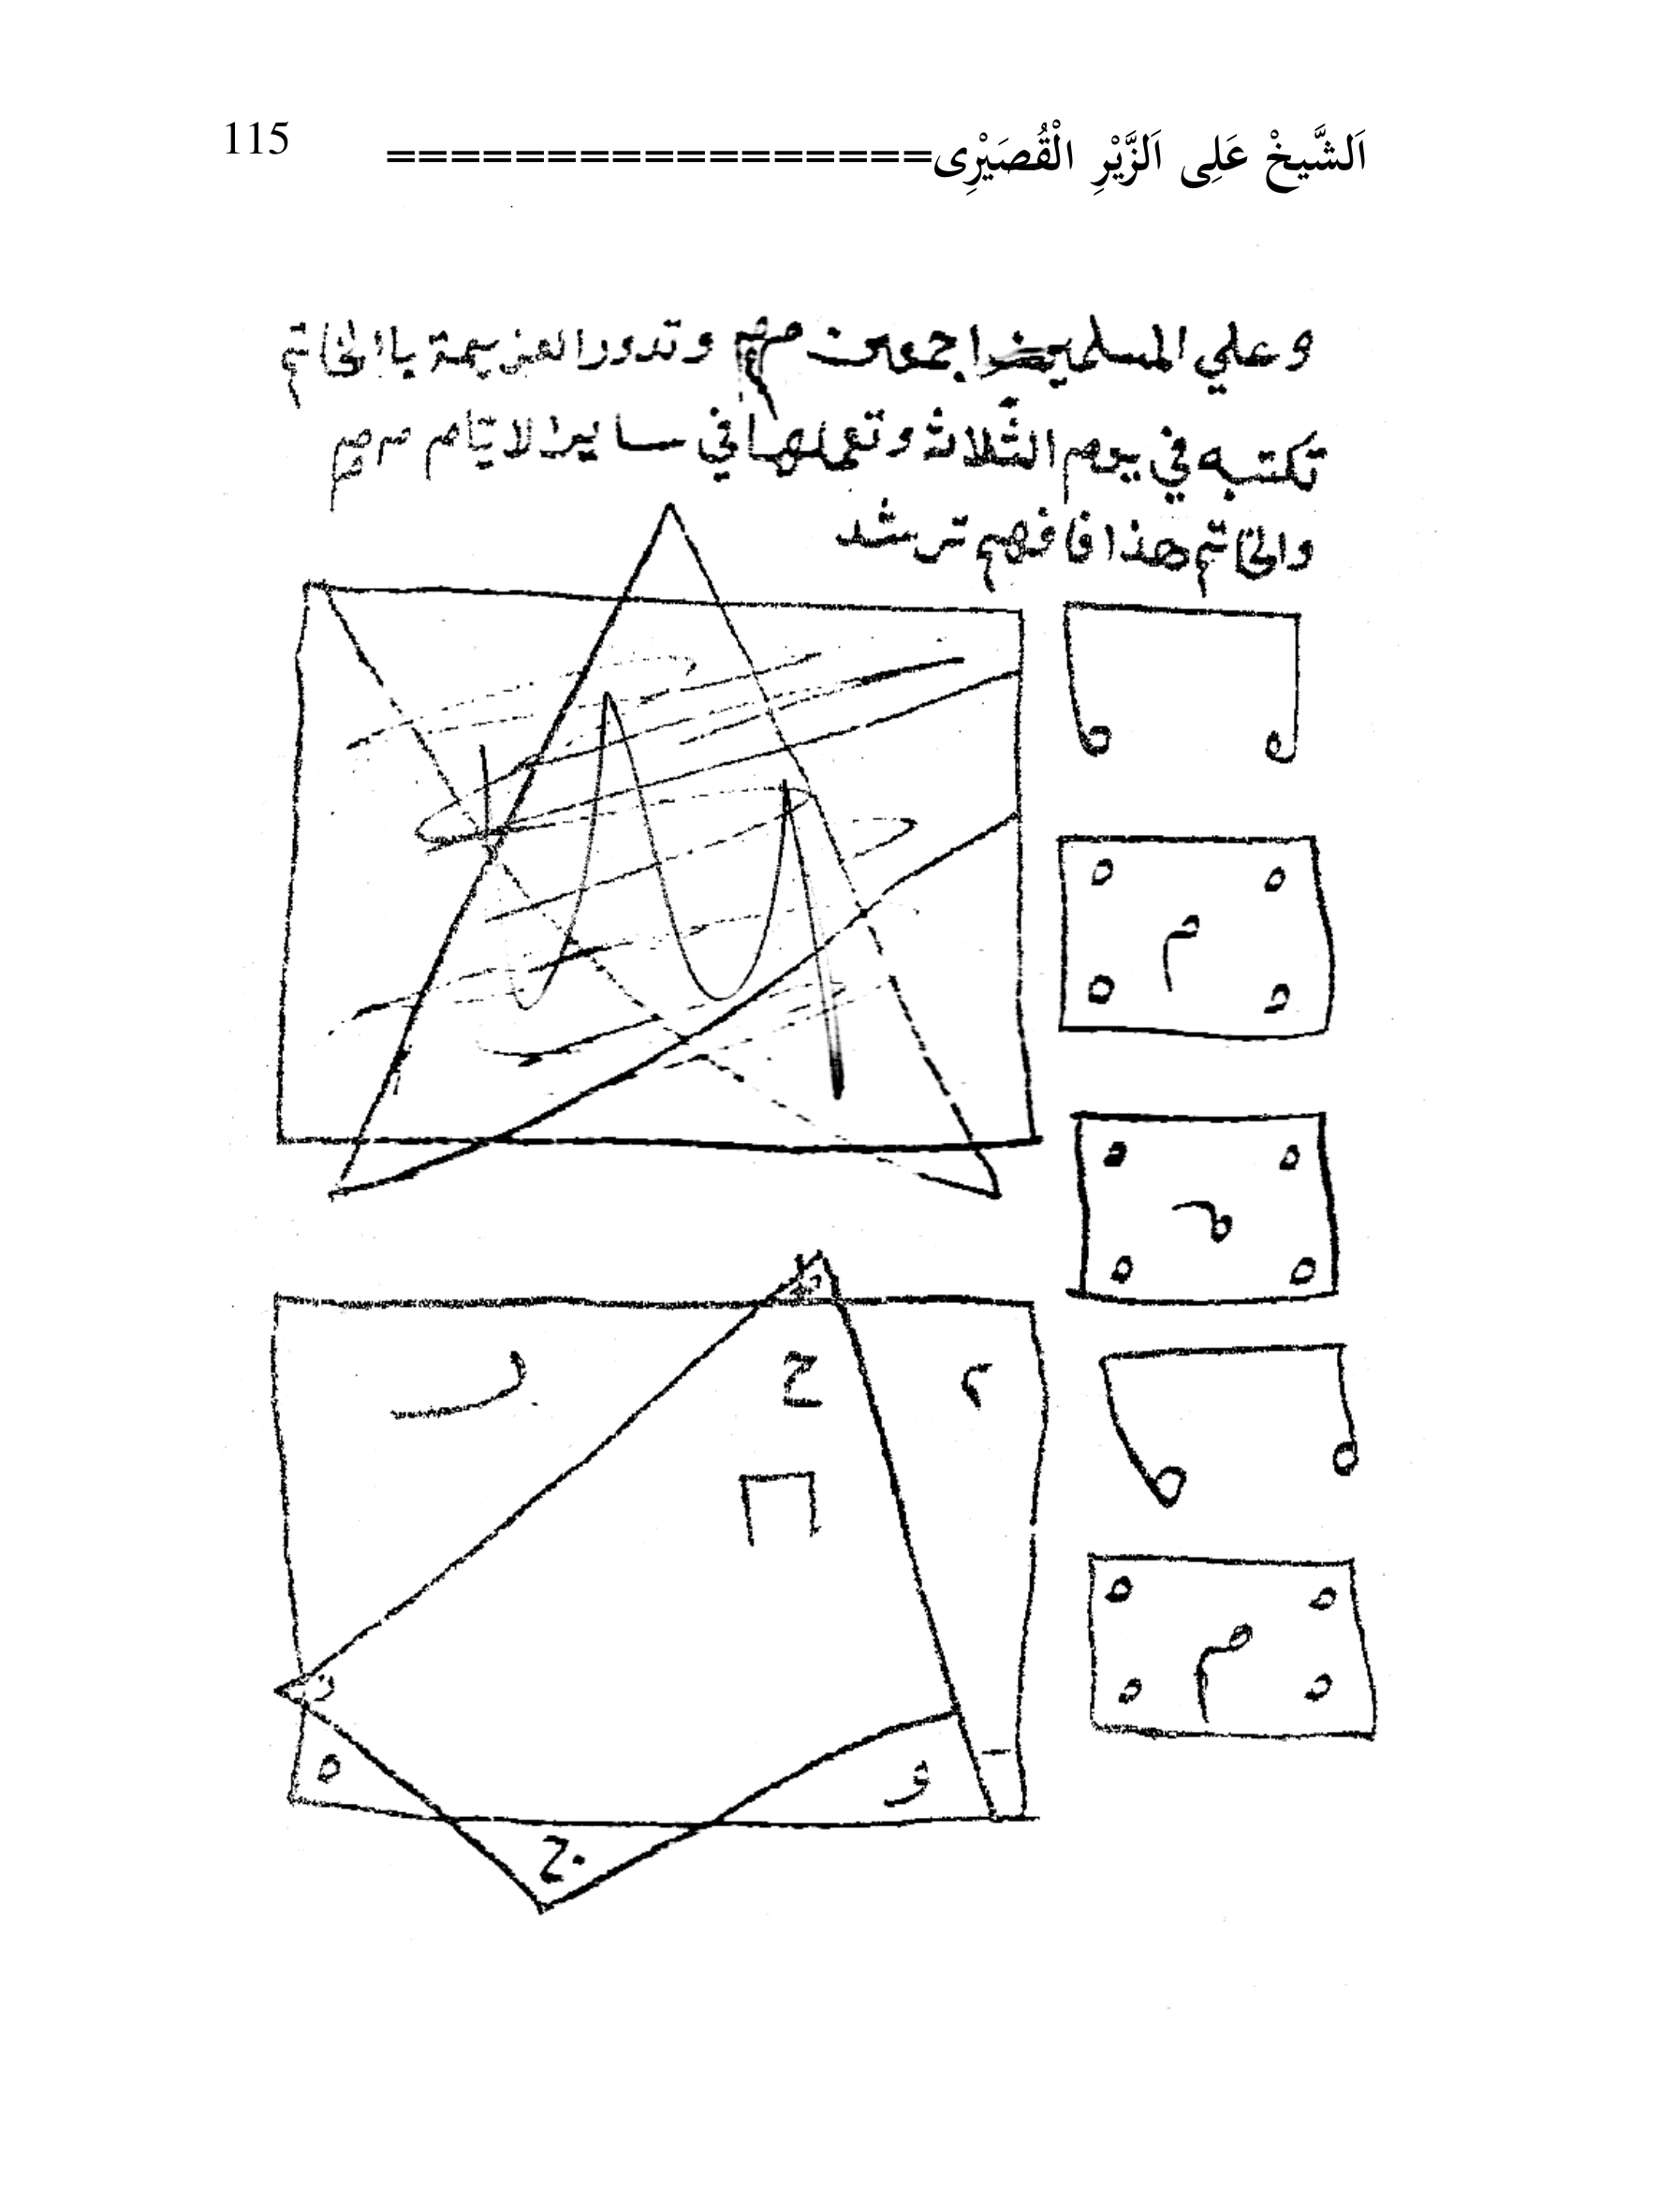 اَلشَّيخْ عَلِى اَلزَّيْرِ الْقُصَيْرِى=================
115
وعلي المسلمين اجمعين مهم وتدور العزيمة باالخاتم
تكتبه في يوم الثلاث وتعملها في سايرالايام مهم
والخاتم هذا فافهم ترشد
م
م
م
ح
و
ج